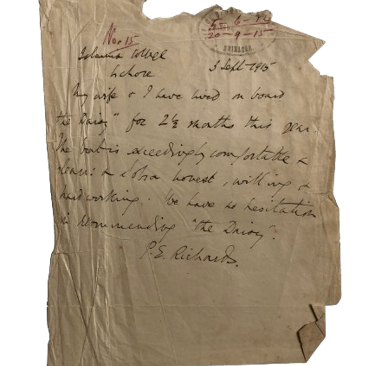 No. 15
20-9-15
SRINAGAR
Islamia College
Lahore
3 Sept-1915
My wife & I have lived on board
the Daisy" for 2½ months this year.
The boat is exceedingly comfortable &
clean: & Sobra honest, willing &
hardworking. We have no hesitation
in recommending "the Daisy".
P. E. Richards.